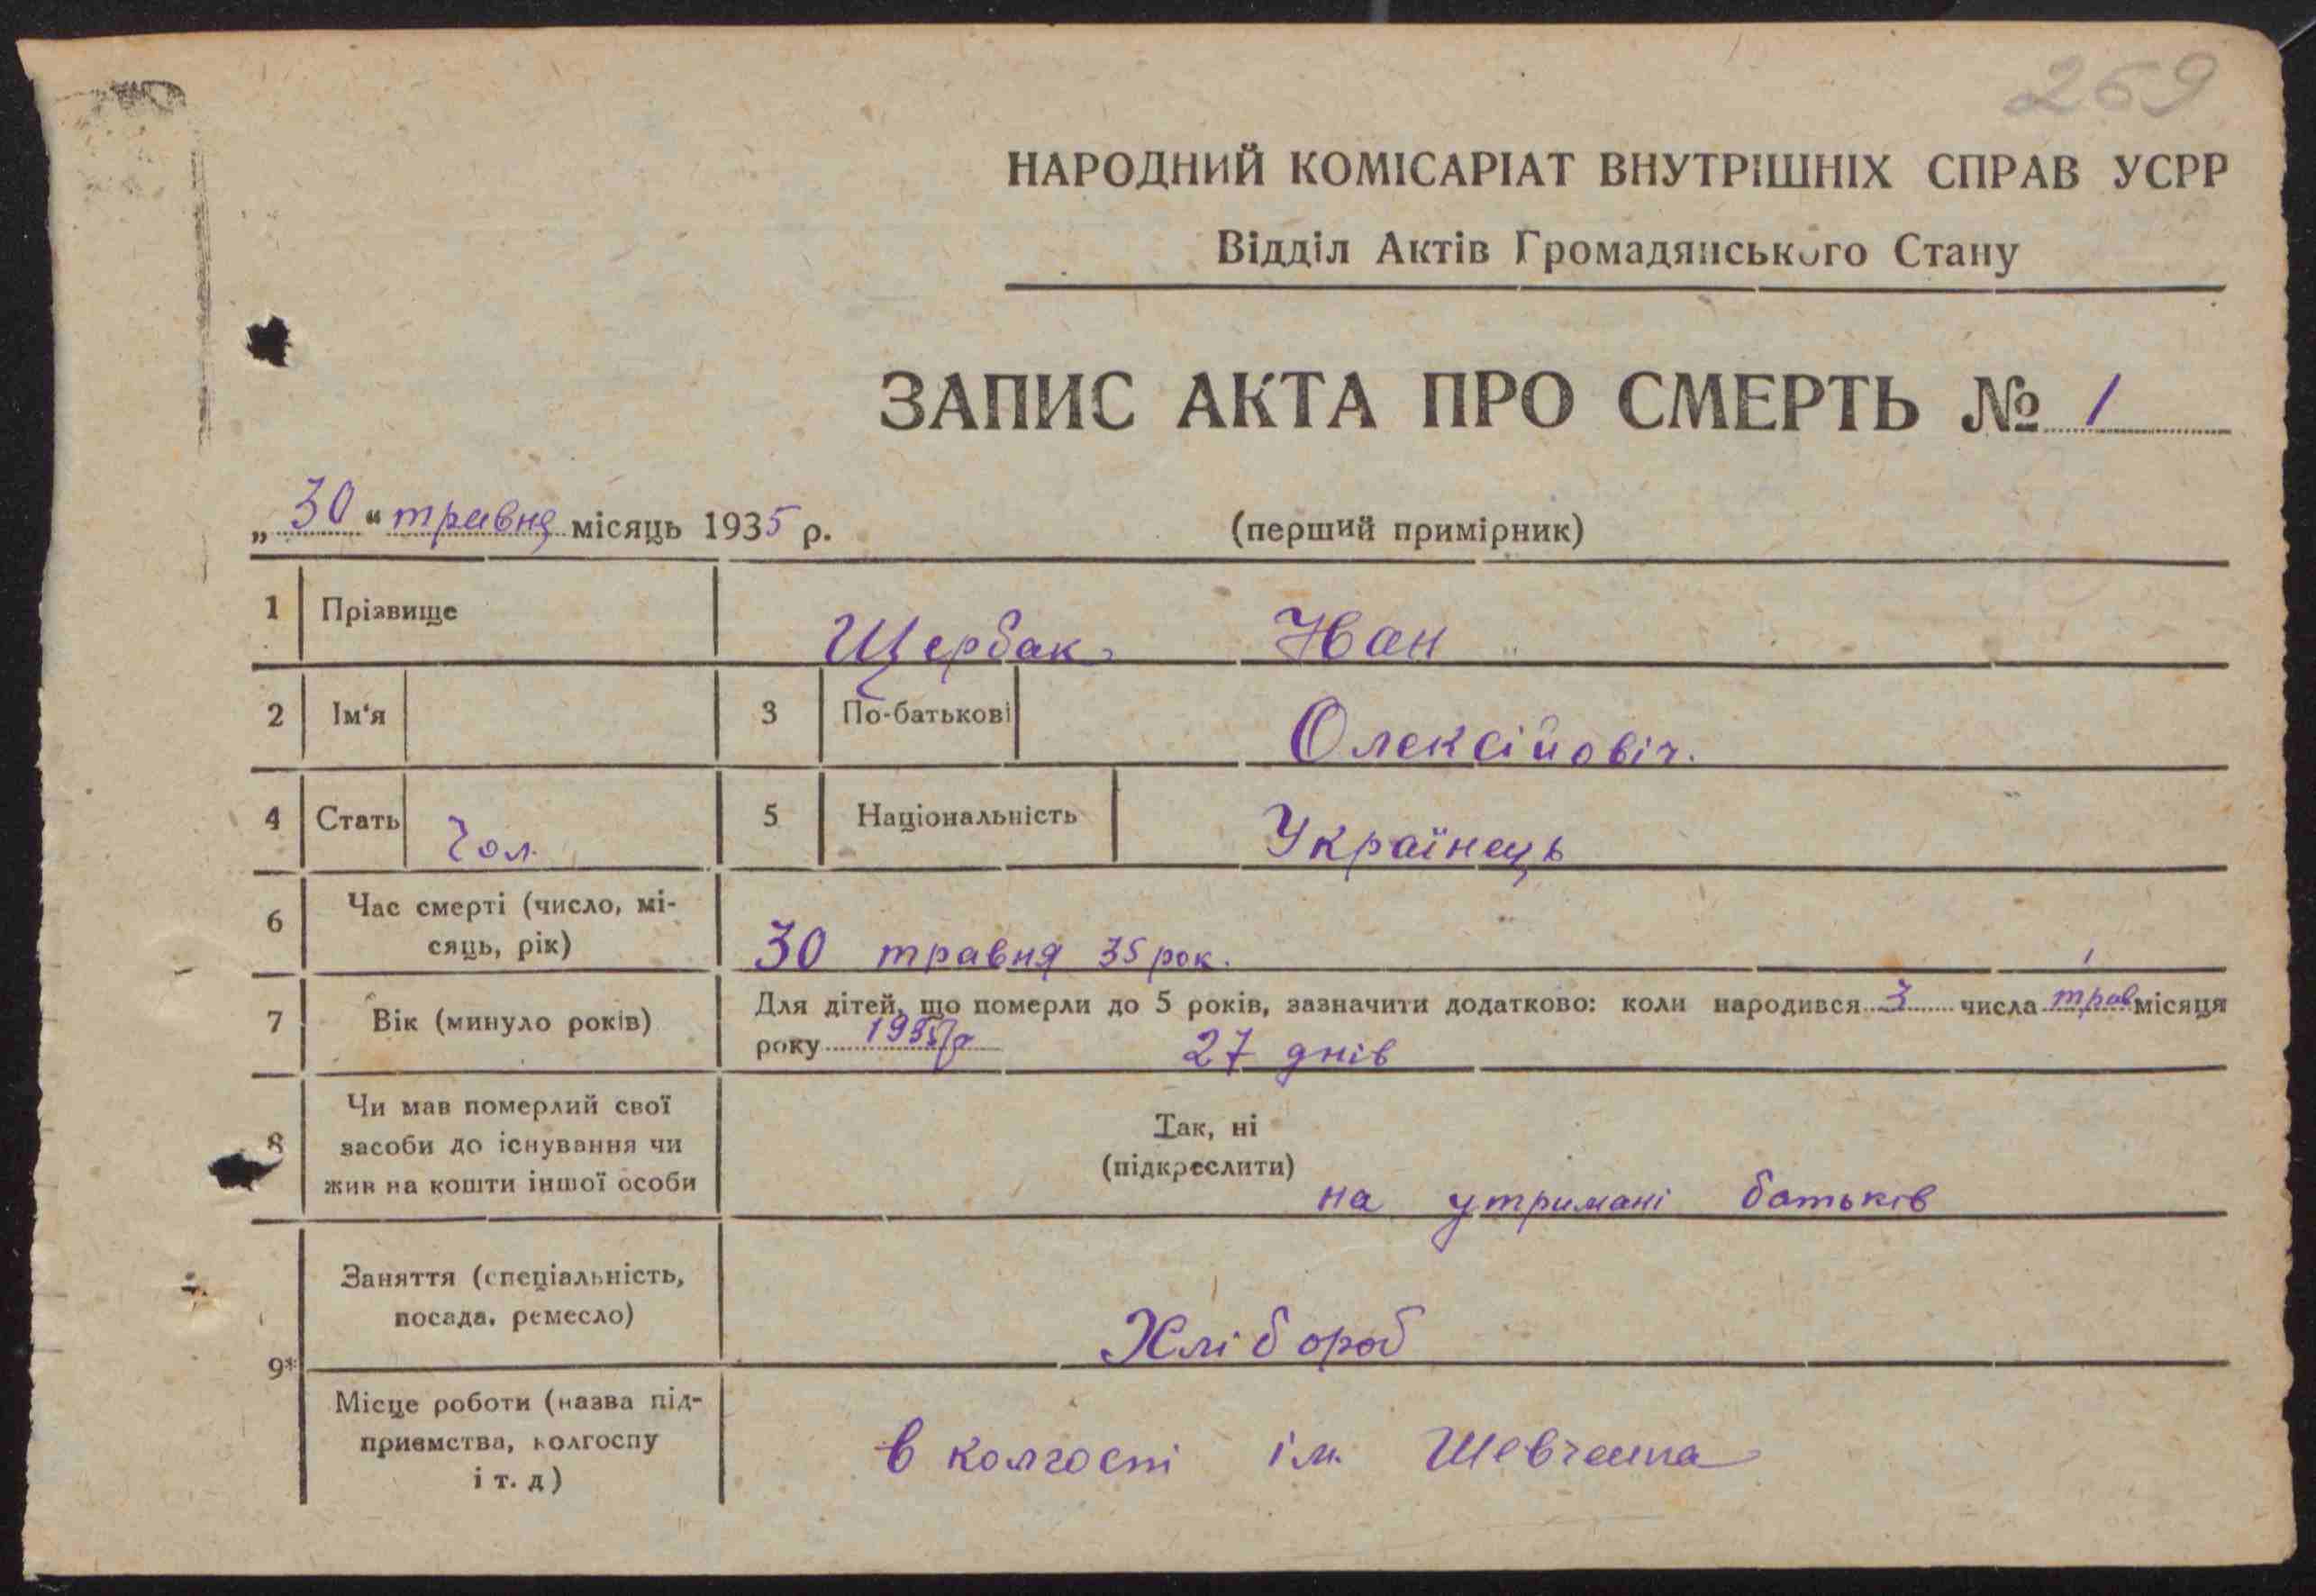 269
НАРОДНИЙ КОМІСАРІАТ ВНУТРІШНІХ СПРАВ УСРР
Відділ Актів Громадянського Стану
ЗАПИС АКТА ПРО СМЕРТЬ № 1
„30“ травня місяць 1935 р. (перший примірник)
1 Прізвище Щербак Иван
2 Ім'я 3 По-батькові Олексійовіч.
4 Стать Чол. 5 Національність Українець
6 Час смерті (число, мі-
сяць, рік) 30 травня 35 рок.
7 Вік (минуло років) Для дітей, що померли до 5 років, зазначити додатково: коли народився 3 числа трав місяця
року 1935р 27 днів
8 Чи мав померлий свої
засоби до існування чи
жив на кошти іншої особи
Так, ні
(підкреслити) на утримані батьків
9* Заняття (спеціальність,
посада, ремесло) Хлібороб
Місце роботи (назва під-
приємства, колгоспу
і т. д) в колгоспі ім. Шевченка